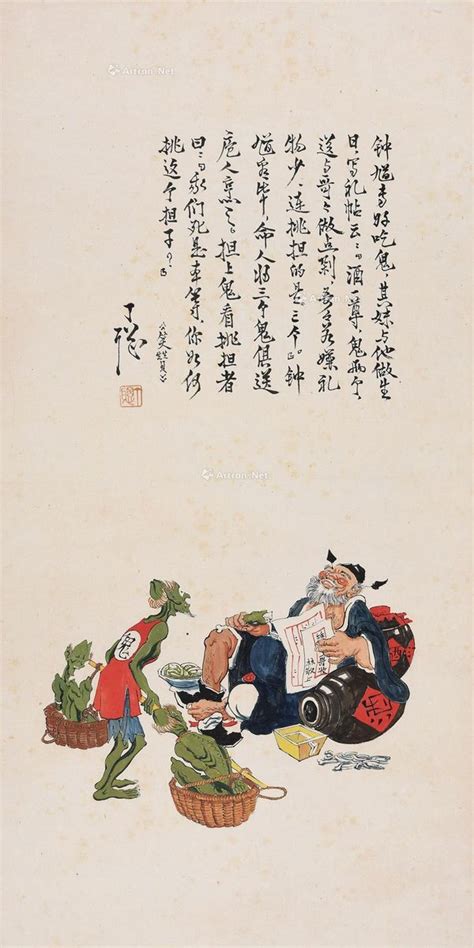 钟馗专好吃鬼,其妹与他做生
日,写礼帖云:“酒一尊,鬼两个
送与哥々做点剁,哥々若嫌礼
物少,连挑担的是三个。”钟
馗看毕,命人将三个鬼俱送
庖人烹之。担上鬼看挑担者
曰:“我们死是本等,你如何
挑这个担子?”
《笑赞》
丁聪
鬼
酒
Artron.Net
Artron.Net